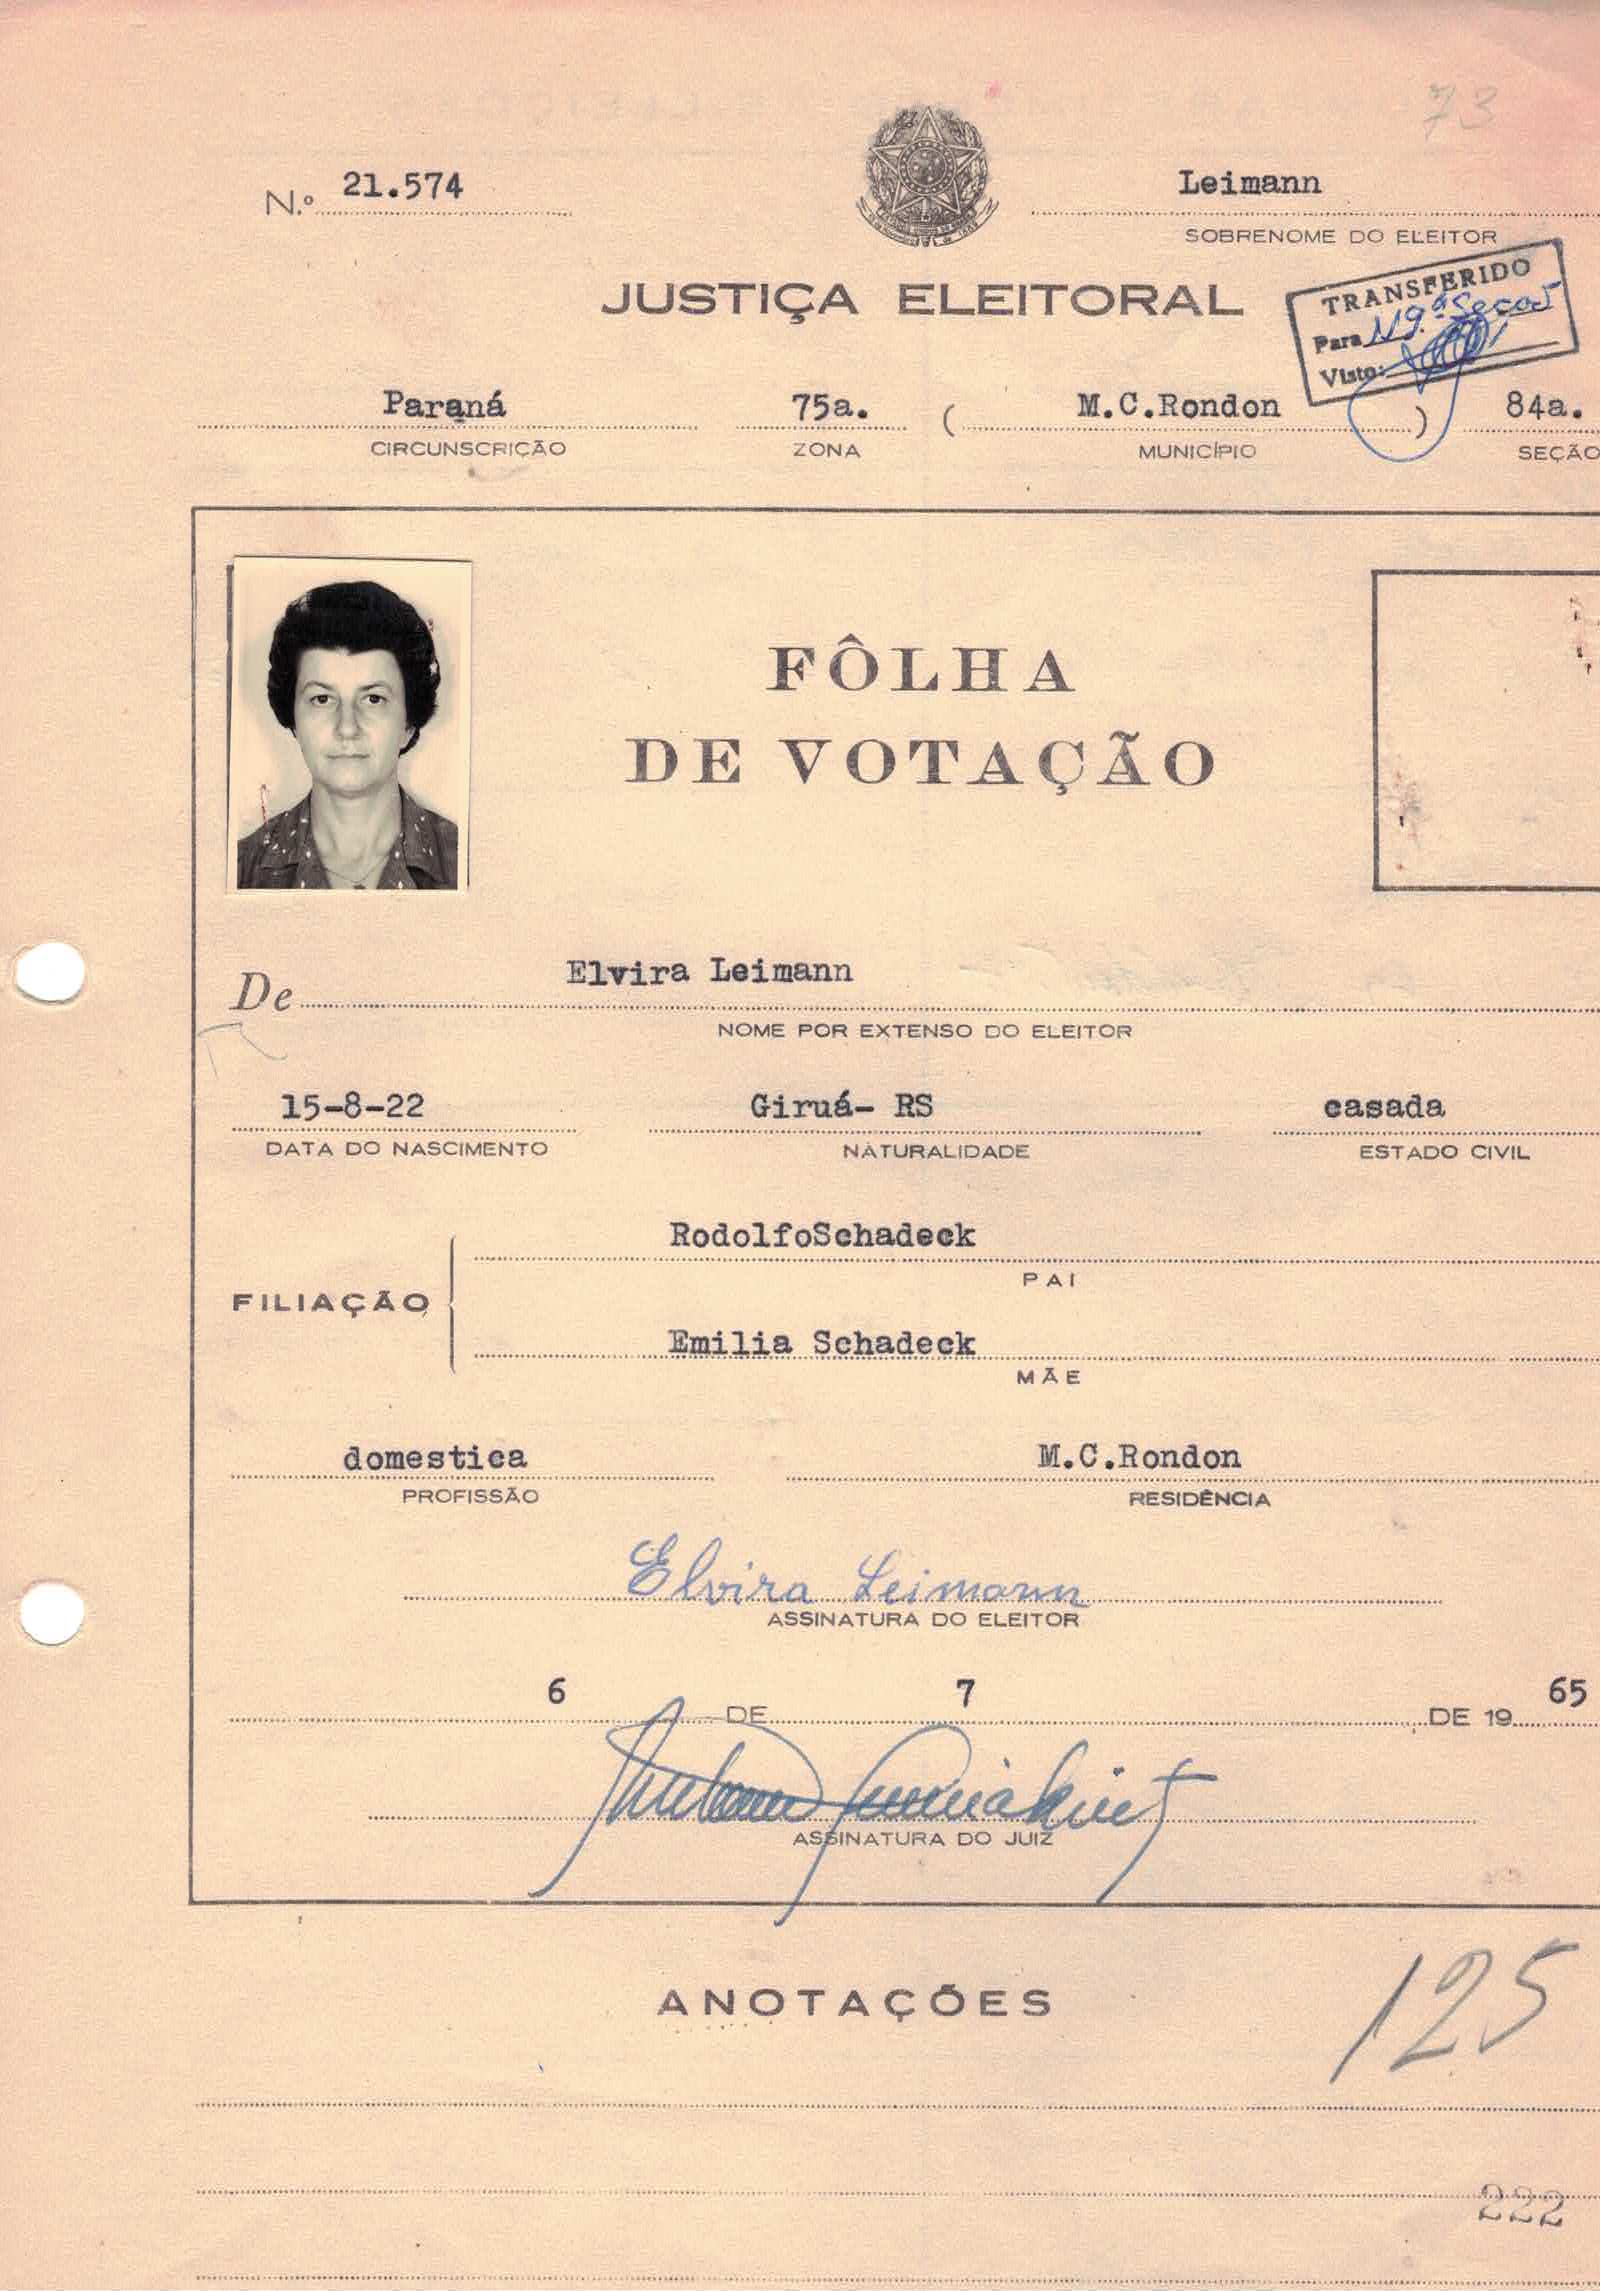 73
N.º 21.574
Leimann
SOBRENOME DO ELEITOR
JUSTIÇA ELEITORAL
TRANSFERIDO
Para 119.ª Secao
Visto:
Paraná 75a. ( M.C.Rondon ) 84a.
CIRCUNSCRIÇÃO ZONA MUNICÍPIO SEÇÃO
FÔLHA
DE VOTAÇÃO
De Elvira Leimann
NOME POR EXTENSO DO ELEITOR
15-8-22 Giruá- RS casada
DATA DO NASCIMENTO NATURALIDADE ESTADO CIVIL
RodolfoSchadeck
PAI
FILIAÇÃO
Emilia Schadeck
MÃE
domestica M.C.Rondon
PROFISSÃO RESIDÊNCIA
Elvira Leimann
ASSINATURA DO ELEITOR
6 DE 7 DE 19 65
ASSINATURA DO JUIZ
ANOTAÇÕES
125
222